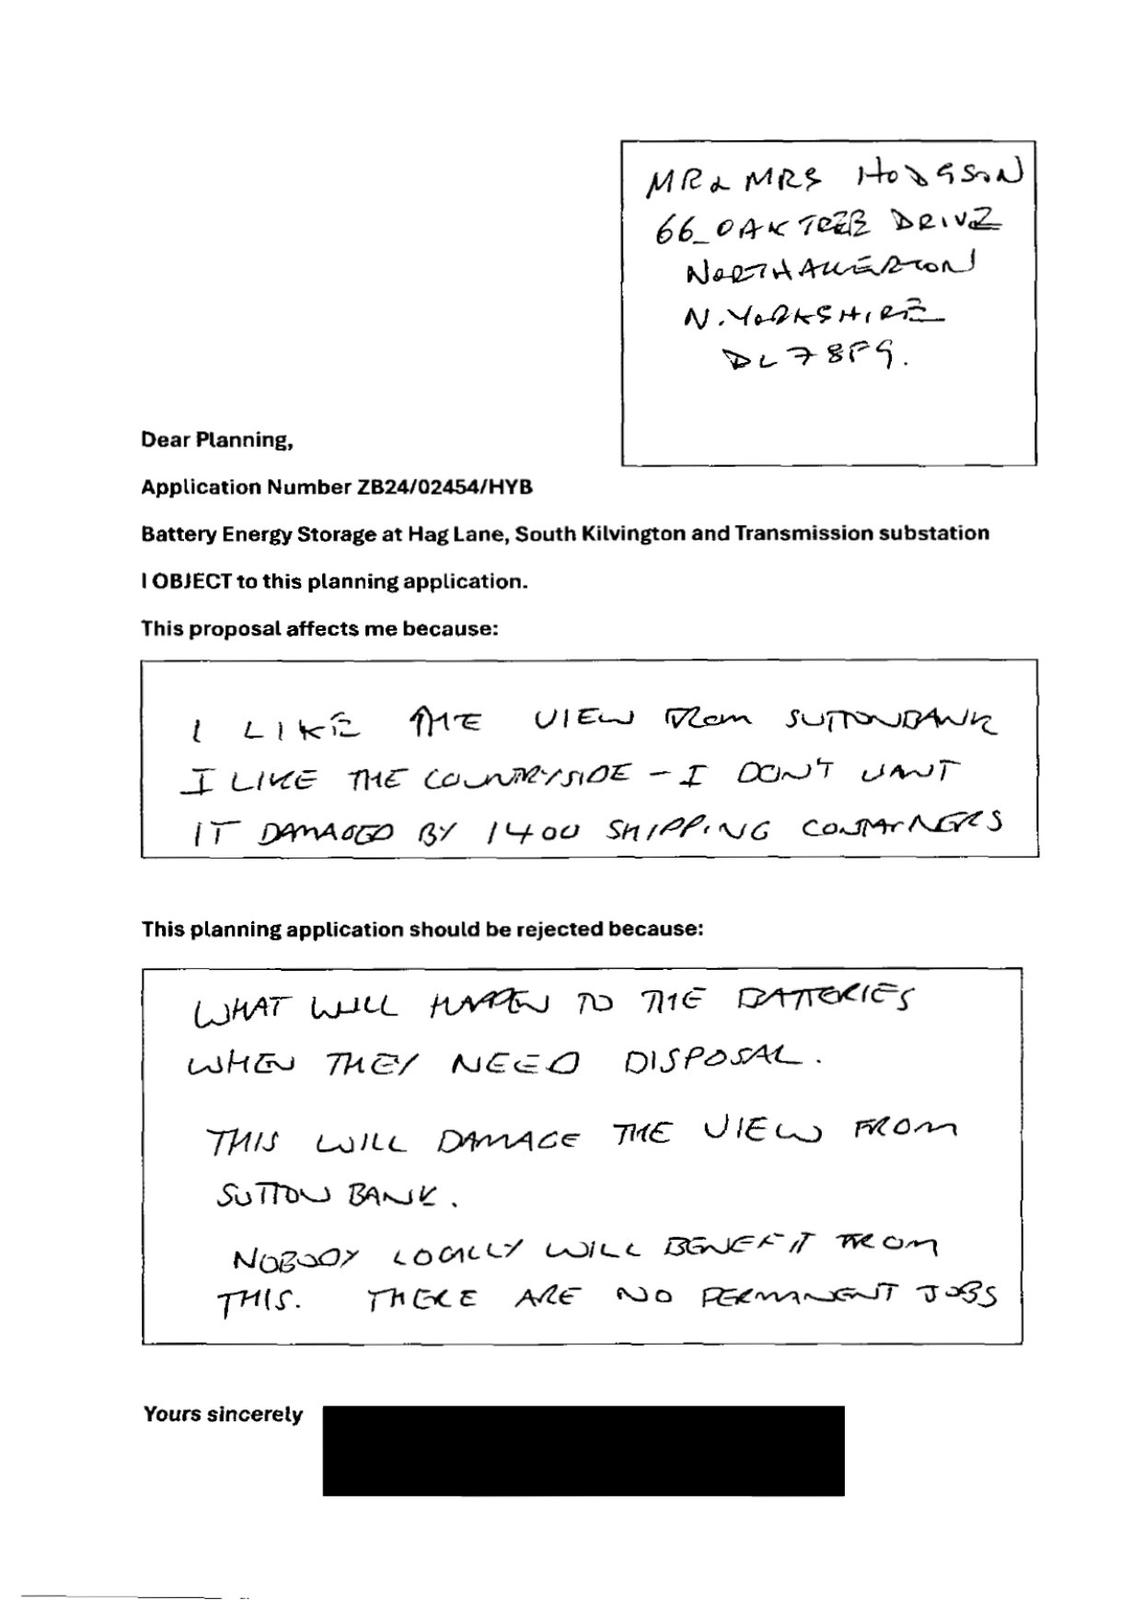 MR & MRS HODGSON
66 OAKTREE DRIVE
NORTHALLERTON
N. YORKSHIRE
DL7 8FG.
Dear Planning,
Application Number ZB24/02454/HYB
Battery Energy Storage at Hag Lane, South Kilvington and Transmission substation
I OBJECT to this planning application.
This proposal affects me because:
I LIKE THE VIEW FROM SUTTONBANK
I LIKE THE COUNTRYSIDE - I DON'T WANT
IT DAMAGED BY 1400 SHIPPING CONTAINERS
This planning application should be rejected because:
WHAT WILL HAPPEN TO THE BATTERIES
WHEN THEY NEED DISPOSAL.
THIS WILL DAMAGE THE VIEW FROM
SUTTON BANK.
NOBODY LOCALLY WILL BENEFIT FROM
THIS. THERE ARE NO PERMANENT JOBS
Yours sincerely